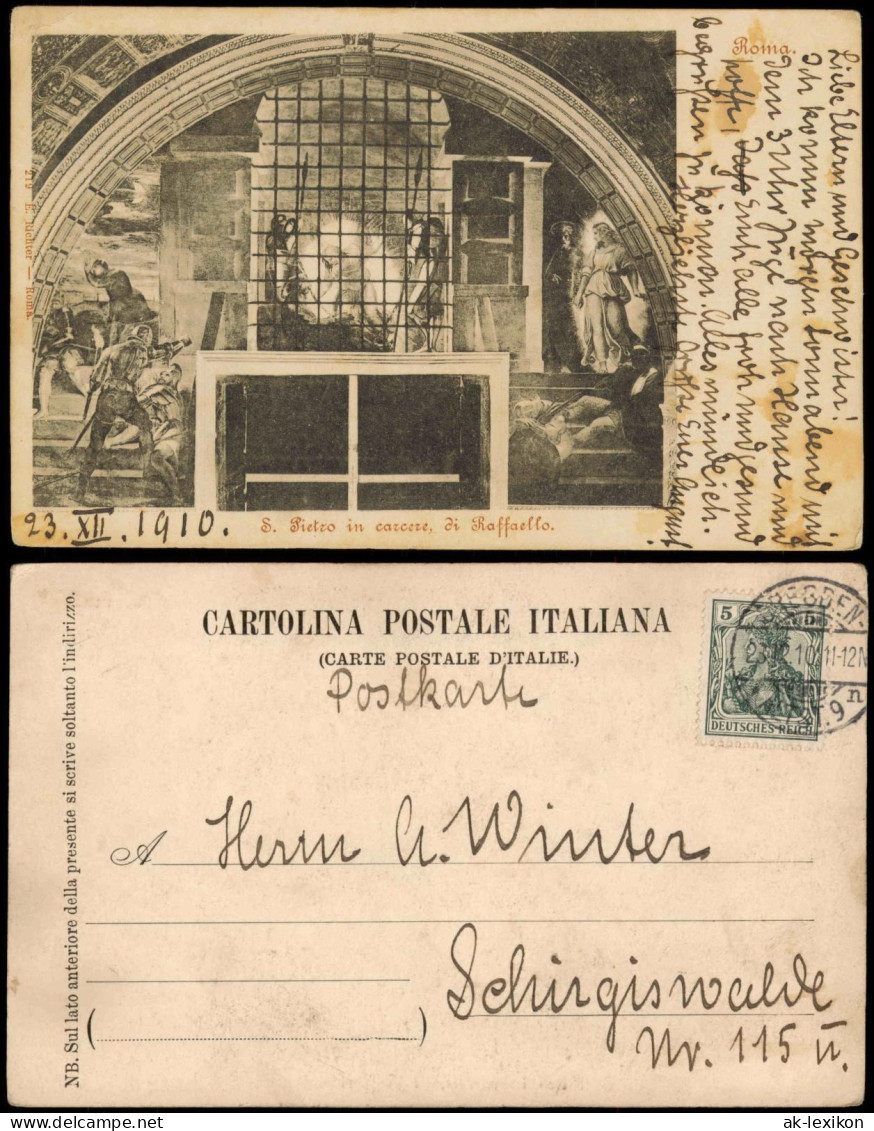 Roma.
Liebe Eltern und Geschwister!
Ich komme morgen Sonnabend mit
dem 3 Uhr Zuge nach Hause und
hoffe, Euch alle froh und gesund
begrüßen zu können. Alles mündlich.
Herzlichst grüßt Euer August
219 E. Richter — Roma.
23. XII. 1910.
S. Pietro in carcere, di Raffaello.
NB. Sul lato anteriore della presente si scrive soltanto l'indirizzo.
CARTOLINA POSTALE ITALIANA
(CARTE POSTALE D'ITALIE.)
Postkarte
5 5
DEUTSCHES REICH
DRESDEN-
23.12.10 11-12N
n
9
A Herrn A. Winter
Schirgiswalde
Nr. 115 II.
ak-lexikon